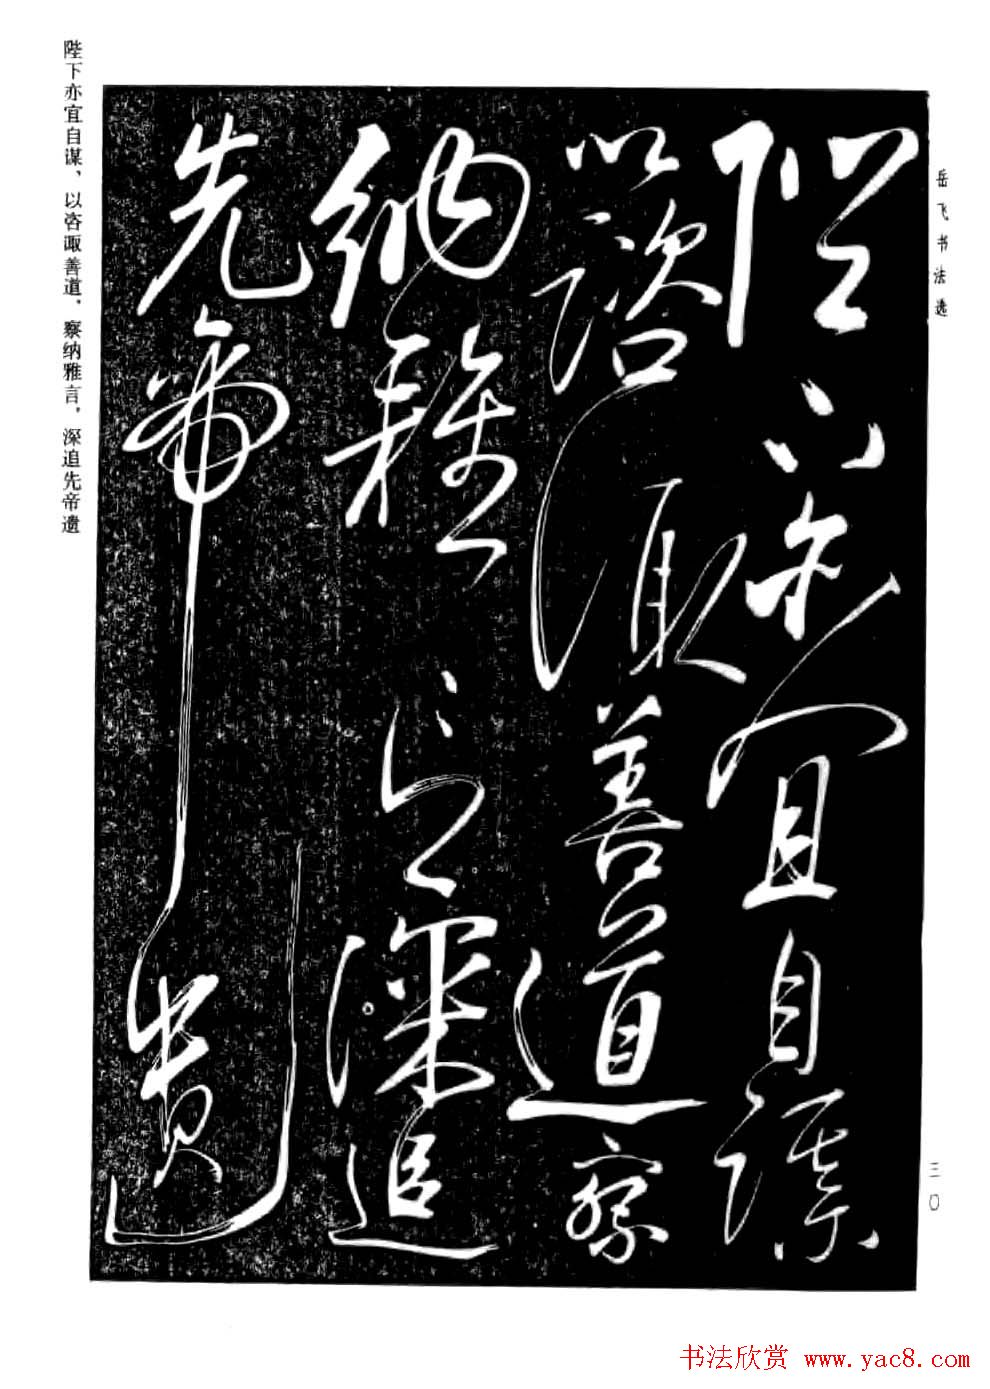 岳飞书法选
陛下亦宜自謀
以諮諏善道察
納雅言深追
先帝遺
陛下亦宜自谋、以咨诹善道，察纳雅言，深追先帝遗
三〇
书法欣赏 www.yac8.com